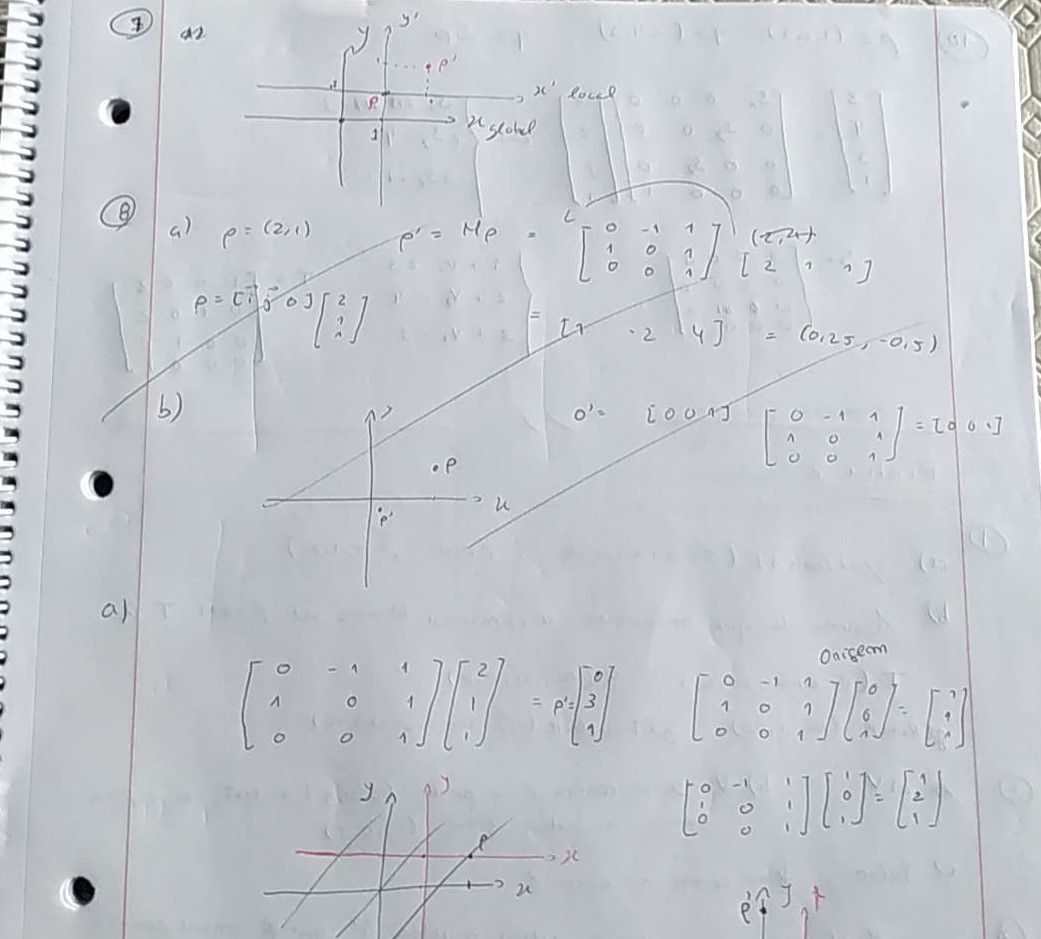 7
y y'
p'
x' local
P
x global
1
8
a) p = (2,1) p' = Mp = [0 -1 1; 1 0 1; 0 0 1] [2 1 1]
p = [i j 0] [2; 1; 1] = [1 -2 4] = (0,25, -0,5)
b) y
0' = [0 0 1] [0 -1 1; 1 0 1; 0 0 1] = [0 0 1]
p
x
p'
a)
Origem
[0 -1 1; 1 0 1; 0 0 1] [2; 1; 1] = p' = [0; 3; 1] [0 -1 1; 1 0 1; 0 0 1] [0; 0; 1] = [1; 1; 1]
[0 -1 1; 1 0 1; 0 0 1] [1; 0; 1] = [1; 2; 1]
y y
P
x
x
p' y